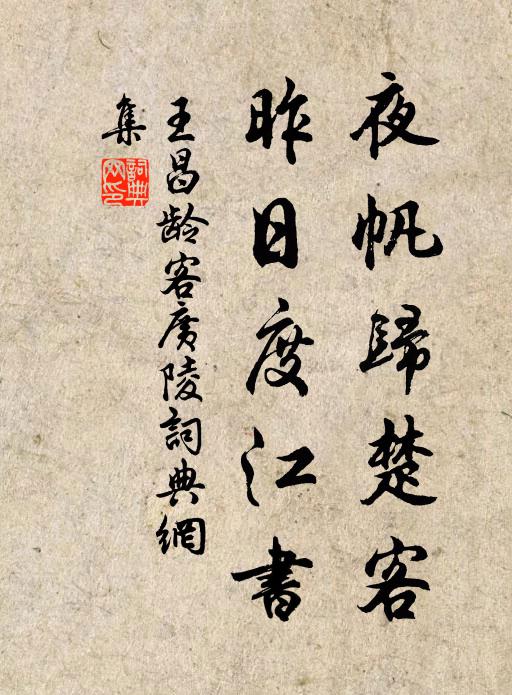 夜帆歸楚客
昨日度江書
王昌龄客广陵詞典網
集
詞典網印